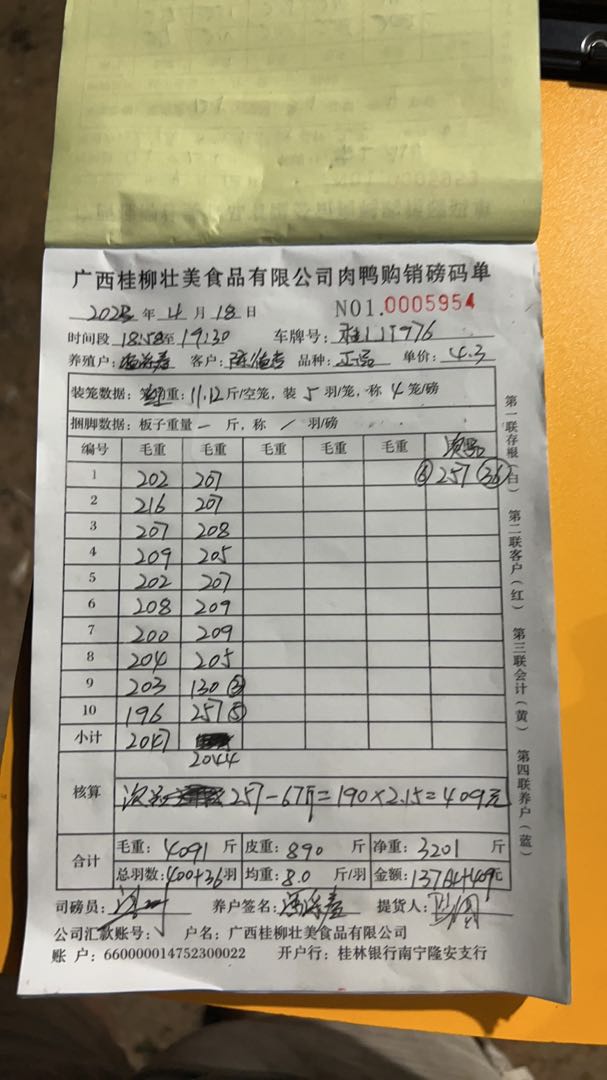 广西桂柳壮美食品有限公司肉鸭购销磅码单
2023 年 4 月 18 日 NO1.0005954
时间段 18:58至 19:30 车牌号:
养殖户: 客户: 品种: 正品 单价: 4.3
装笼数据: 重: 11.12 斤/空笼，装 5 羽/笼，称 4 笼/磅
捆脚数据: 板子重量 — 斤，称 / 羽/磅
编号 毛重 毛重 毛重 毛重 毛重 次品
1 202 207 ⑥ 257 36
2 216 207
3 207 208
4 209 205
5 202 207
6 208 209
7 200 209
8 204 205
9 203 130 ③
10 196 257 ⑤
小计 2047
2044
核算 次品 257-67斤=190×2.15=409元
合计 毛重: 4091 斤 皮重: 890 斤 净重: 3201 斤
总羽数: 400+36 羽 均重: 8.0 斤/羽 金额: 13764+409元
司磅员: 养户签名: 提货人:
公司汇款账号: 户名: 广西桂柳壮美食品有限公司
账 户: 660000014752300022 开户行: 桂林银行南宁隆安支行
第一联存根(白) 第二联客户(红) 第三联会计(黄) 第四联养户(蓝)